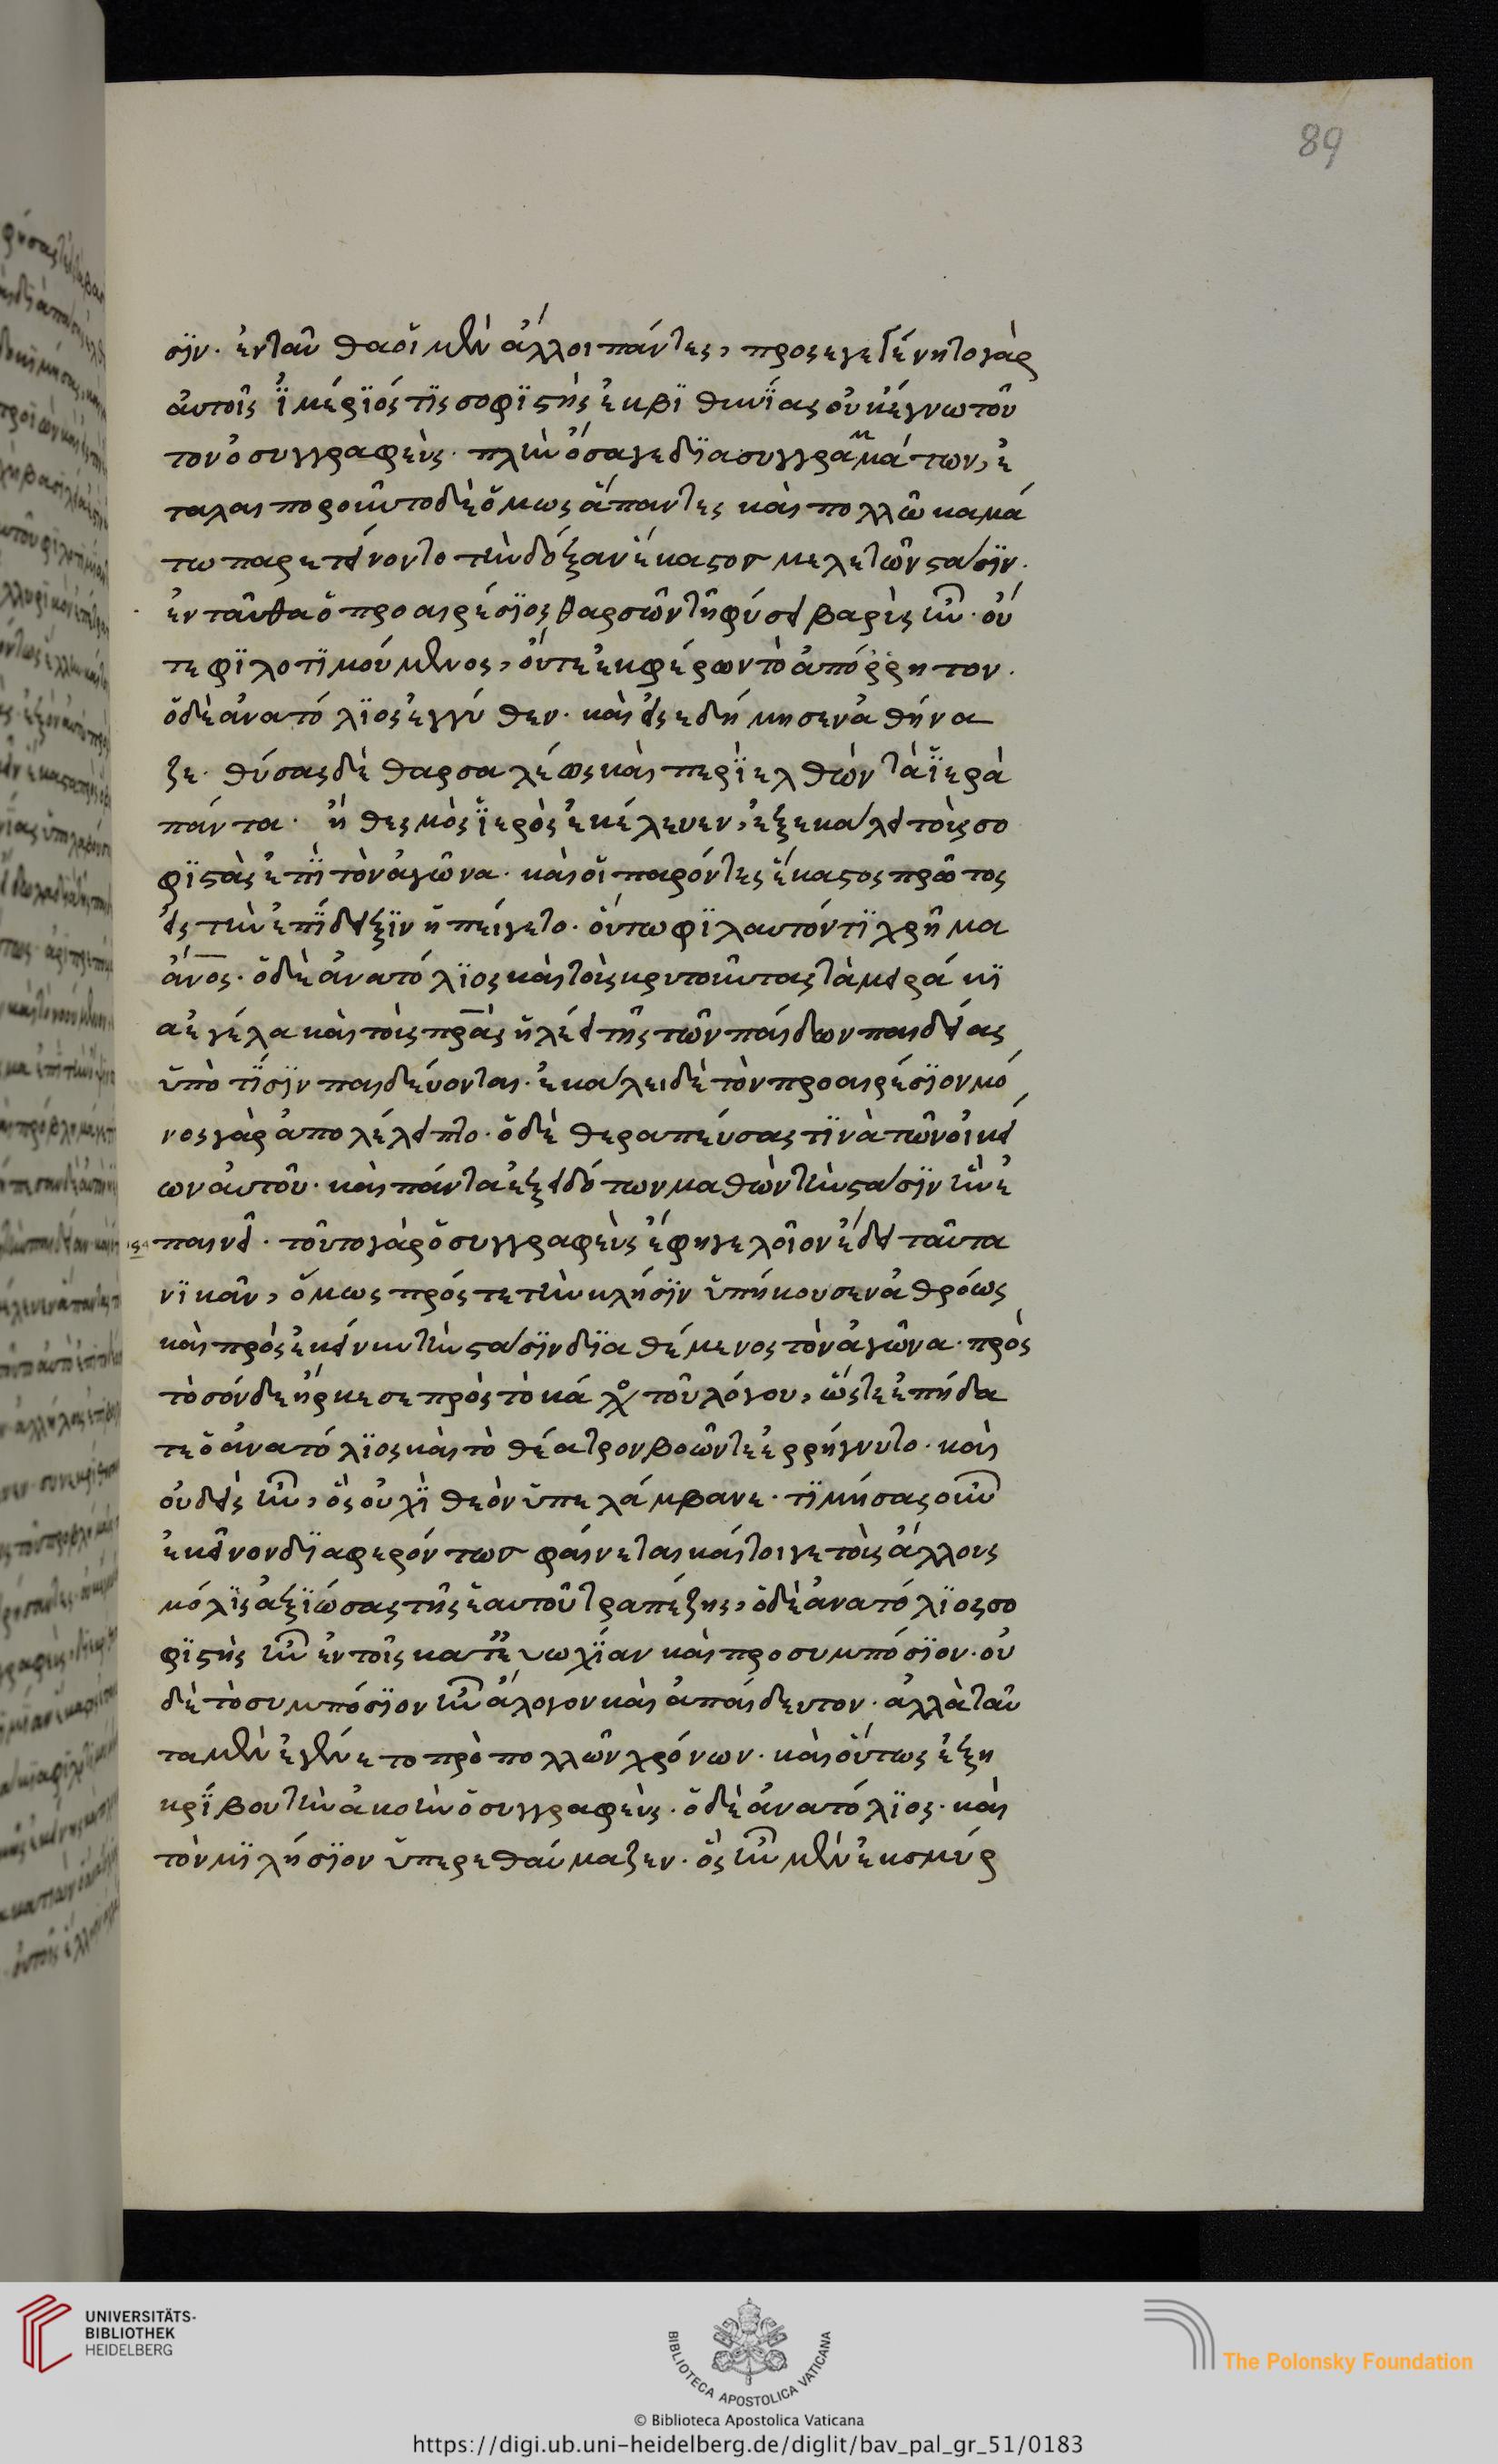 89
σϊν. ἐνταῦθα οἱ μὲν ἄλλοι πάντες, προσεγεγένητο γὰρ
αὐτοῖς ἱμέριός τις σοφιστὴς ἐκ βιθυνίας οὐκ ἔγνω τοῦ
τον ὁ συγγραφεὺς· πλὴν ὅσα γε διὰ συγγραμμάτων, ἐ
ταλαιπωροῦντο δὲ ὅμως ἅπαντες καὶ πολλῶ καμά
τω παρετείνοντο τὴν δόξαν ἕκαστον μελετῶν στάσιν.
ἐνταῦθα ὁ προαιρέσιος θαρσῶν τῆ φύσει βαρὺς ἦν· οὔ
τε φιλοτιμούμενος, οὔτε ἐκφέρων τὸ ἀπόρρητον.
ὁ δὲ ἀνατόλιος ἐγγύθεν· καὶ εἰσεδήμησεν ἀθήνα
ζε· θύσας δὲ θαρσαλέως καὶ περιελθὼν τὰ ἱερὰ
πάντα· ἧ θεσμὸς ἱερὸς ἐκέλευεν, ἐξεκάλει τοὺς σο
φιστὰς ἐπὶ τὸν ἀγῶνα· καὶ οἱ παρόντες ἕκαστος πρῶτος
εἰς τὴν ἐπίδειξιν ἠπείγετο· οὕτω φίλαυτόν τι χρῆμα
ἄνος· ὁ δὲ ἀνατόλιος καὶ τοὺς κροτοῦντας τὰ μειράκι
α ἐγέλα καὶ τοὺς πρὰς ἠλέει τῆς τῶν παίδων παιδείας
ὑπὸ τίσιν παιδεύονται· ἐκάλει δὲ τὸν προαιρέσιον μό
νος γὰρ ἀπολέλειπτο· ὁ δὲ θεραπεύσας τινὰ τῶν οἰκεί
ων αὐτοῦ· καὶ πάντα ἐξειδότων μαθὼν τὴν στάσιν ἣν ἐ
παινεῖ· τοῦτο γὰρ ὁ συγγραφεὺς ἔφη γελοῖον ἔδει ταῦτα
νικᾶν, ὅμως πρός τε τὴν κλῆσιν ὑπήκουσεν ἀθρόως
καὶ πρὸς ἐκείνην τὴν στάσιν διαθέμενος τὸν ἀγῶνα· πρὸς
τὸσόνδε ἤρκεσε πρὸς τὸ κάλλος τοῦ λόγου, ὥστε ἐπήδα
τε ὁ ἀνατόλιος καὶ τὸ θέατρον βοῶν τε ἐρρήγνυτο· καὶ
οὐδεὶς ἦν, ὃς οὐχὶ θεὸν ὑπελάμβανε· τιμήσας οὖν
ἐκεῖνον διαφερόντως φαίνεται καίτοιγε τοὺς ἄλλους
μόλις ἀξιώσας τῆς ἑαυτοῦ τραπέζης, ὁ δὲ ἀνατόλιος σο
φιστὴς ἦν ἐν τοῖς κατ' εὐωχίαν καὶ προσυμπόσιον· οὐ
δὲ τὸ συμπόσιον ἦν ἄλογον καὶ ἀπαίδευτον· ἀλλὰ ταῦ
τα μὲν ἐγένετο πρὸ πολλῶν χρόνων· καὶ οὕτως ἐξη
κρίβου τὴν ἀκοὴν ὁ συγγραφεὺς· ὁ δὲ ἀνατόλιος· καὶ
τὸν μιλήσιον ὑπερεθαύμαζεν· ὃς ἦν μὲν ἐκ σμύρ
UNIVERSITÄTS-
BIBLIOTHEK
HEIDELBERG
BIBLIOTECA APOSTOLICA VATICANA
The Polonsky Foundation
© Biblioteca Apostolica Vaticana
https://digi.ub.uni-heidelberg.de/diglit/bav_pal_gr_51/0183